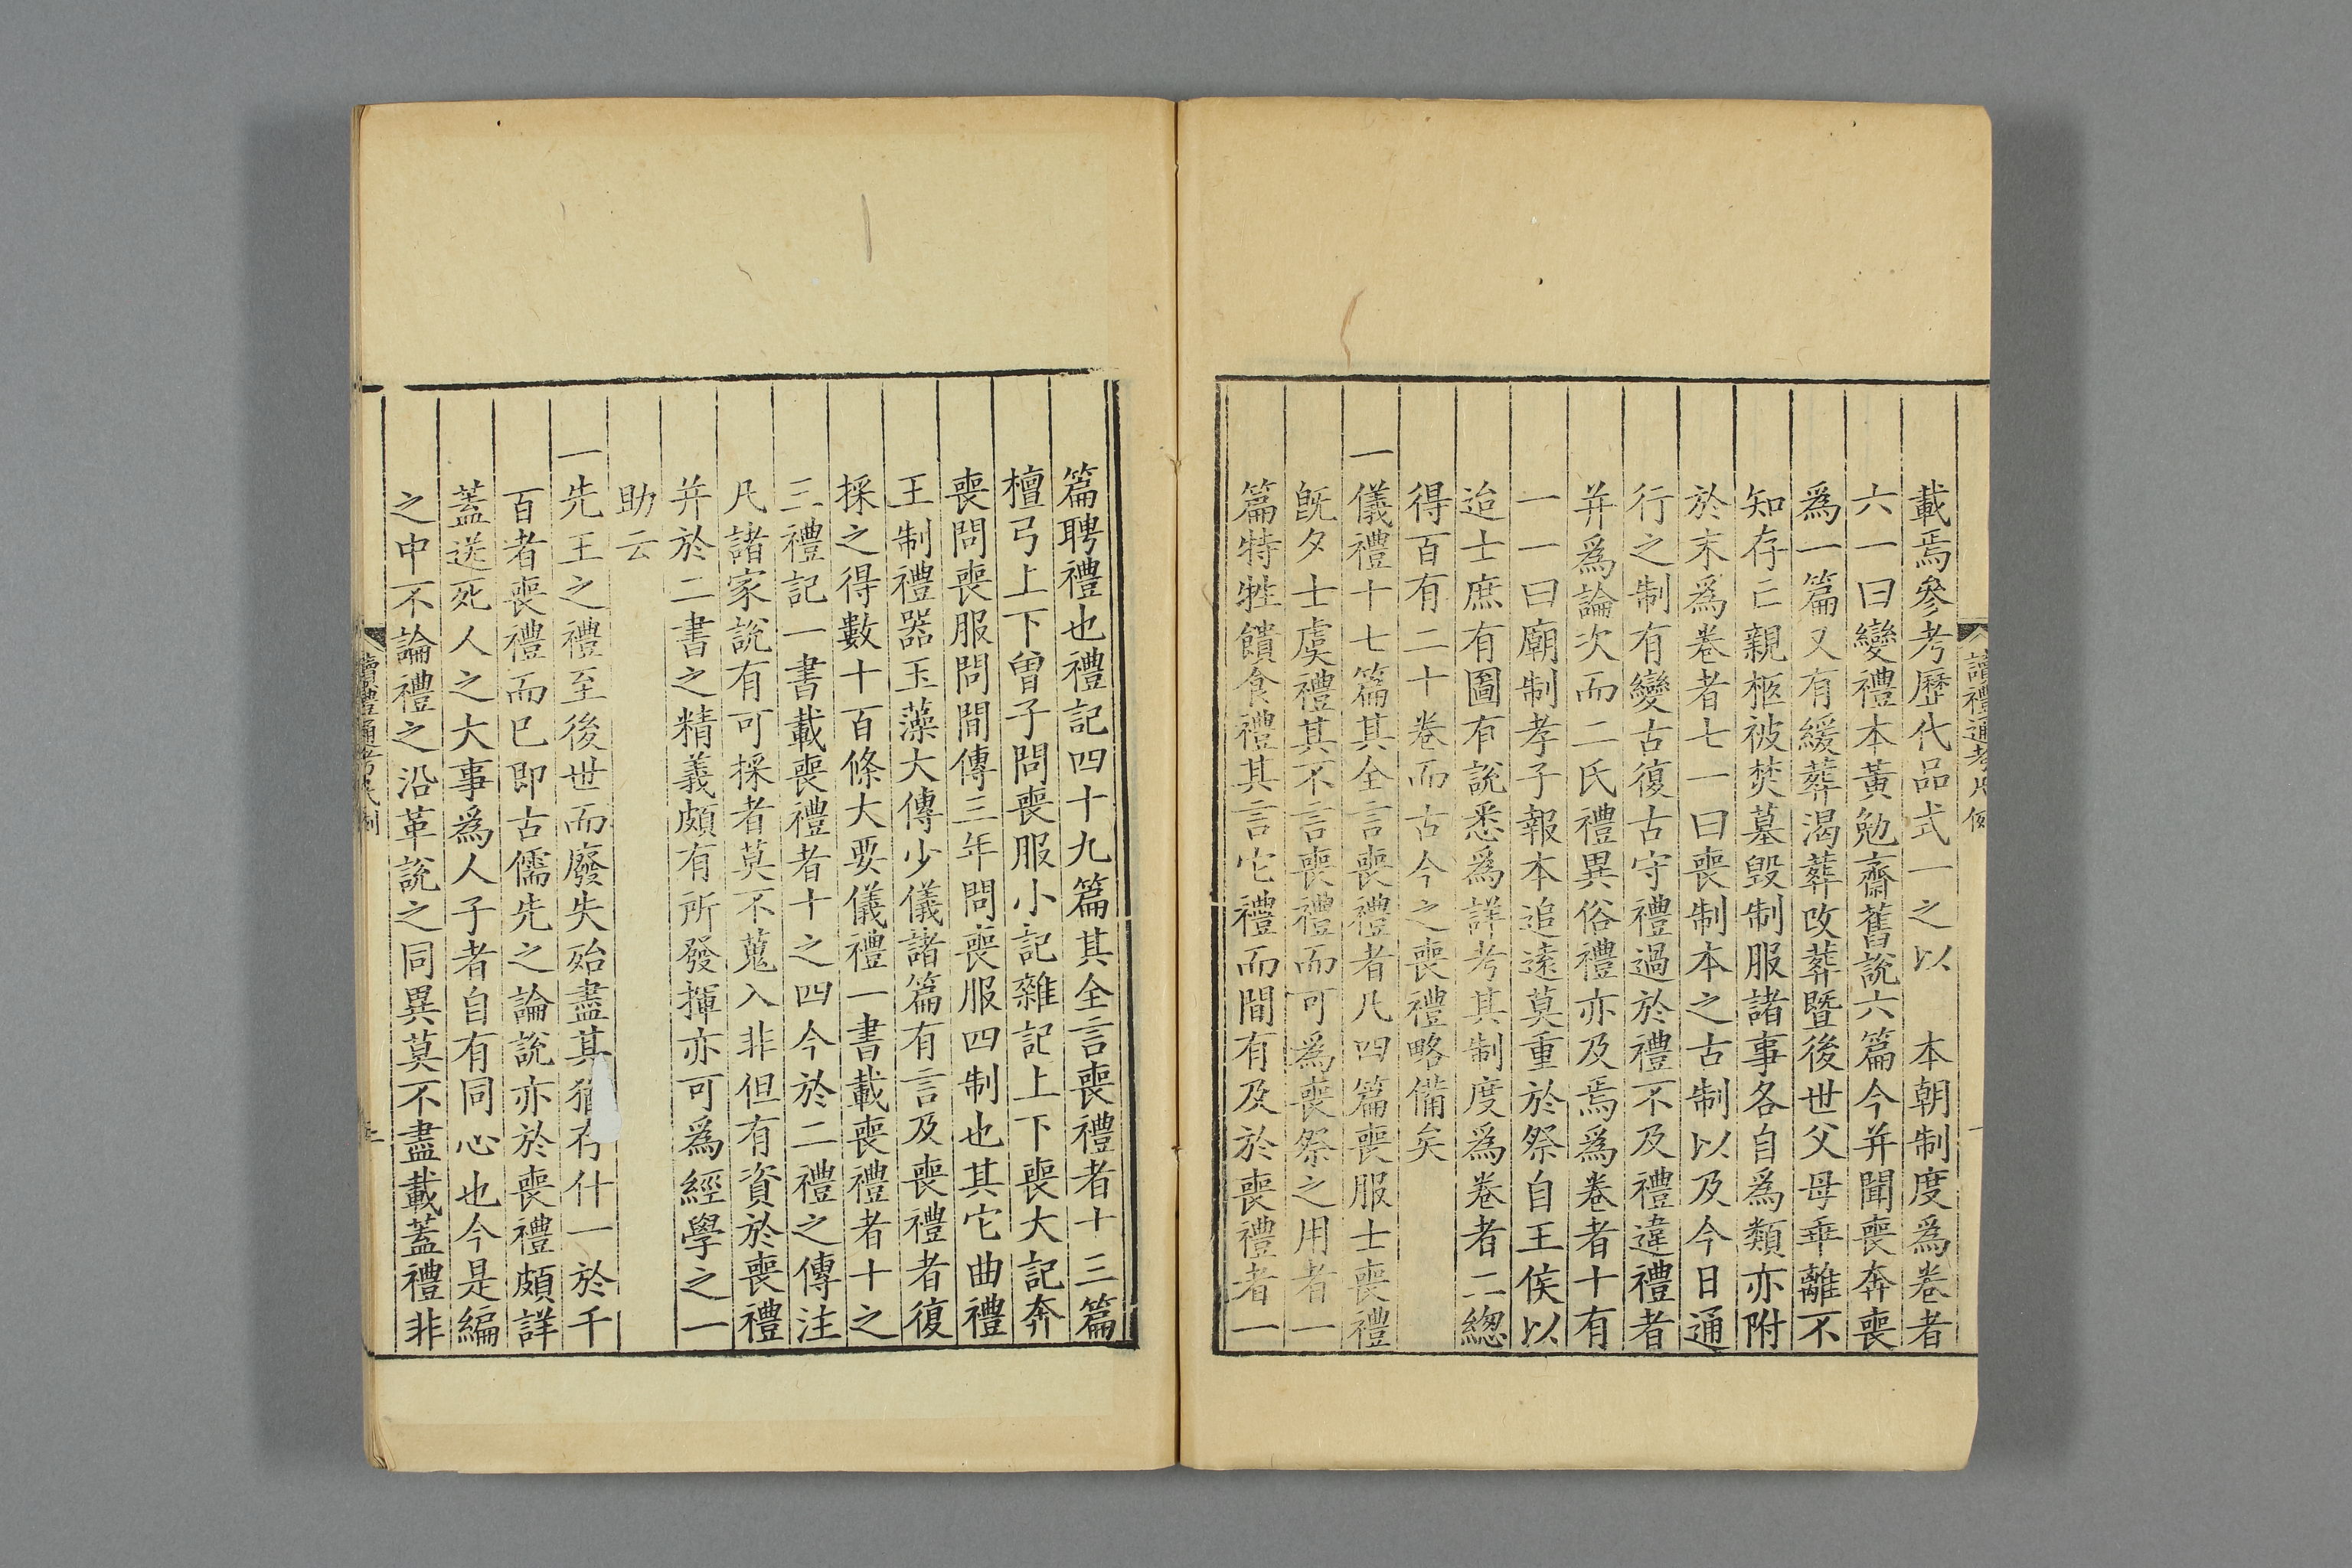 載焉參考歷代品式一之以　本朝制度爲卷者
六一曰變禮本黃勉齋舊說六篇今并聞喪奔喪
爲一篇又有緩葬渴葬改葬暨後世父母乖離不
知存亡親柩被焚墓毀制服諸事各自爲類亦附
於末爲卷者七一曰喪制本之古制以及今日通
行之制有變古復古守禮過於禮不及禮違禮者
并爲論次而二氏禮異俗禮亦及焉爲卷者十有
一一曰廟制孝子報本追遠莫重於祭自王侯以
迨士庶有圖有說悉爲詳考其制度爲卷者二總
得百有二十卷而古今之喪禮略備矣
一儀禮十七篇其全言喪禮者凡四篇喪服士喪禮
既夕士虞禮其不言喪禮而可爲喪祭之用者一
篇特牲饋食禮其言它禮而間有及於喪禮者一
篇聘禮也禮記四十九篇其全言喪禮者十三篇
檀弓上下曾子問喪服小記雜記上下喪大記奔
喪問喪服問間傳三年問喪服四制也其它曲禮
王制禮器玉藻大傳少儀諸篇有言及喪禮者復
採之得數十百條大要儀禮一書載喪禮者十之
三禮記一書載喪禮者十之四今於二禮之傳注
凡諸家說有可採者莫不蒐入非但有資於喪禮
并於二書之精義頗有所發揮亦可爲經學之一
助云
一先王之禮至後世而廢失殆盡其猶存什一於千
百者喪禮而已即古儒先之論說亦於喪禮頗詳
蓋送死人之大事爲人子者自有同心也今是編
之中不論禮之沿革說之同異莫不盡載蓋禮非
讀禮通考
讀禮通考